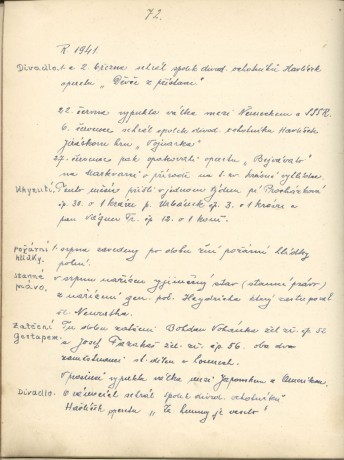 72.
R. 1941
Divadlo. 1. a 2. března sehrál spolek divad. ochotníků Havlíček
operetu „Děvče z přístavu"
22. června vypukla válka mezi Německem a SSSR.
6. července sehrál spolek divad. ochotníků Havlíček
Jiráskovu hru „Vojnarka"
27. července pak opakovali operetu „Bejvávalo"
na v přírodě na t. zv. hrázní vyhlídce.
Tento měsíc přišli v jednom týdnu pí Procházková
čp. 30. o 1 krávu p. Urbánek čp. 3. o 1 krávu a
pan Fr. čp. 12 o 1 koně.
Požární hlídky. 1. srpna zavedeny po dobu žní požární hlídky
polní.
Stanné právo. v srpnu nařízen výjimečný stav (stanné právo)
z nařízení gen. pol. Heydricha který zastupoval
Neuratha.
Zatčení Gestapem. Tu dobu zatčeni Bohdan žel. zř. čp. 52
a Josef žel. zř. čp. 56. oba dva
zaměstnaní
V prosinci vypukla válka mezi Japonskem a Amerikou.
Divadlo. O vánocích sehrál spolek divad. ochotníků
Havlíček operetu „Te je veselo!